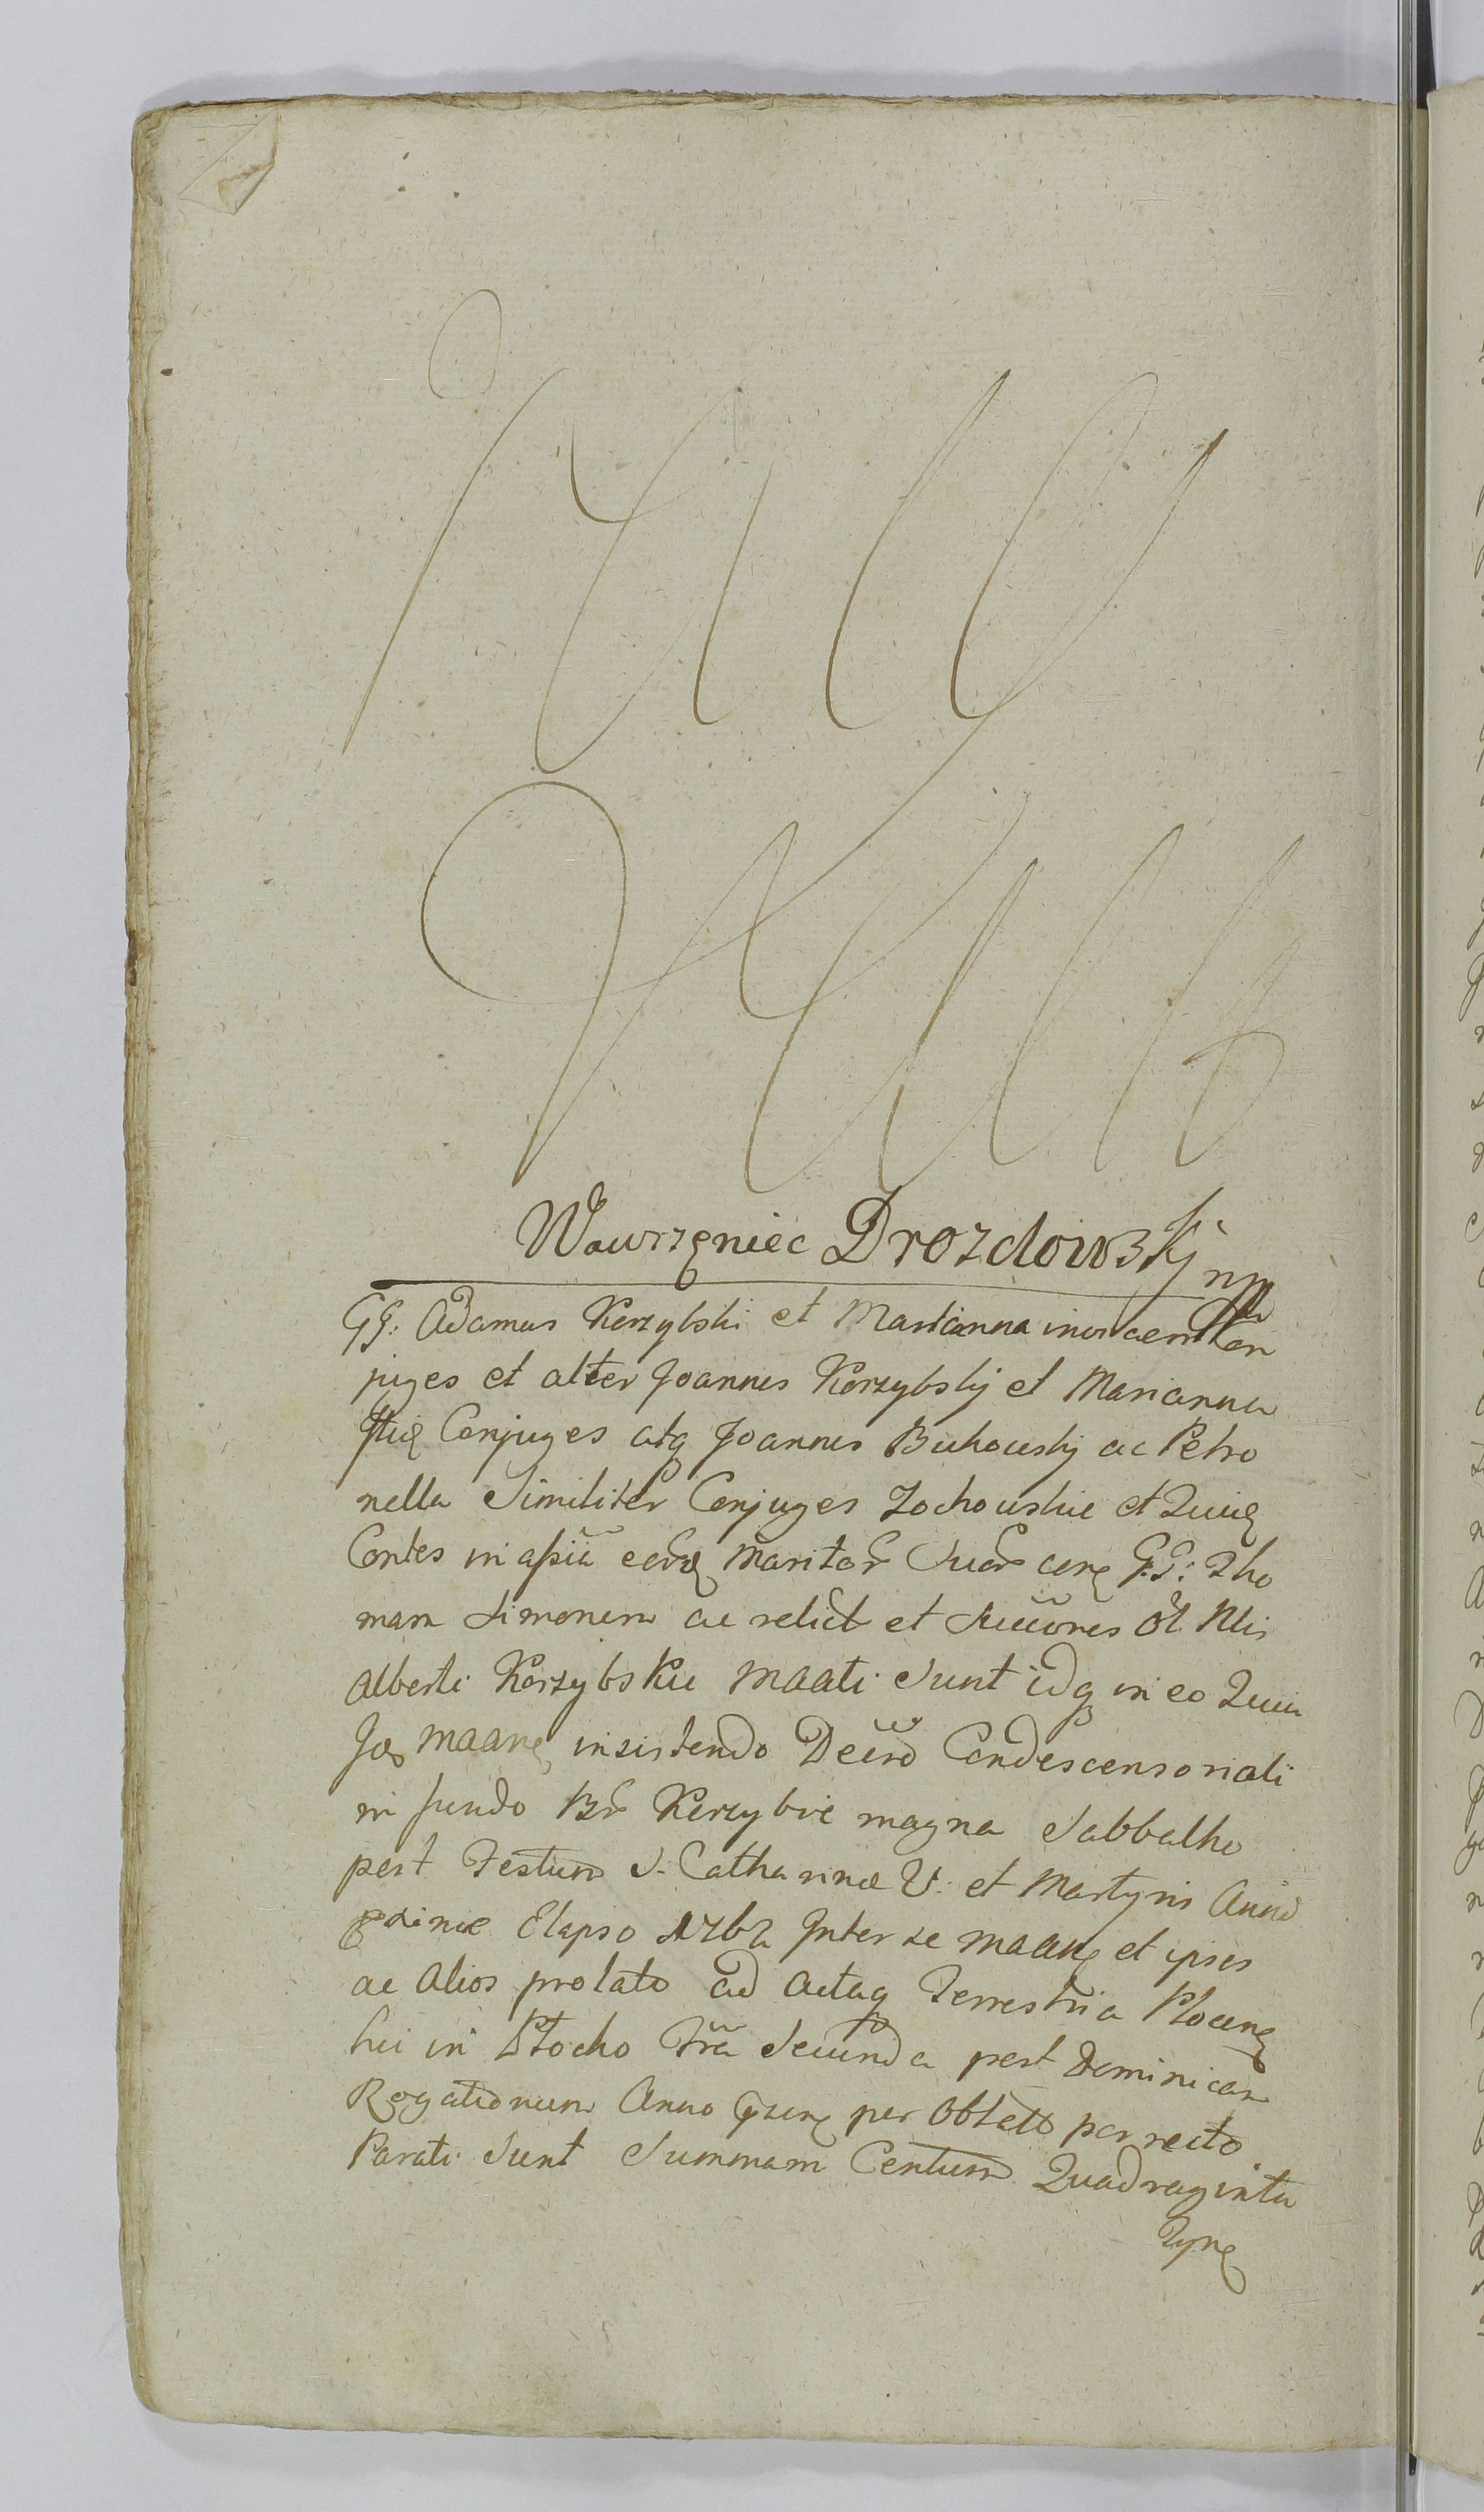 Wawrzęniec Drozdowskj mp
GG: Adamus Korzybski et Marianna invicem Con
juges et alter Joannes Korzybskj et Marianna
Conjuges atq Joannes Buhouskj ac Petro
nella Similiter Conjuges Zochouskie et
in assia Maritor Suor GG: Tho
mam Simonem ac relict et Succores ol Nlis
Alberti Korzybskie maati Sunt idq in eo
maane insistendo Decro Condescensoriali
in fundo Br Korzybie magna Sabbatho
post Festum S. Catharinæ V. et Martyris Anno
Elapso 1762 Inter se maane et ipsos
ac Alios prolato ad Actaq Terrestria Plocen
hui in Ptocko Fra Secunda post Dominicam
Rogationum Anno per Oblatt porrecto
Parati Sunt Summam Centum Quadraginta
Tyne